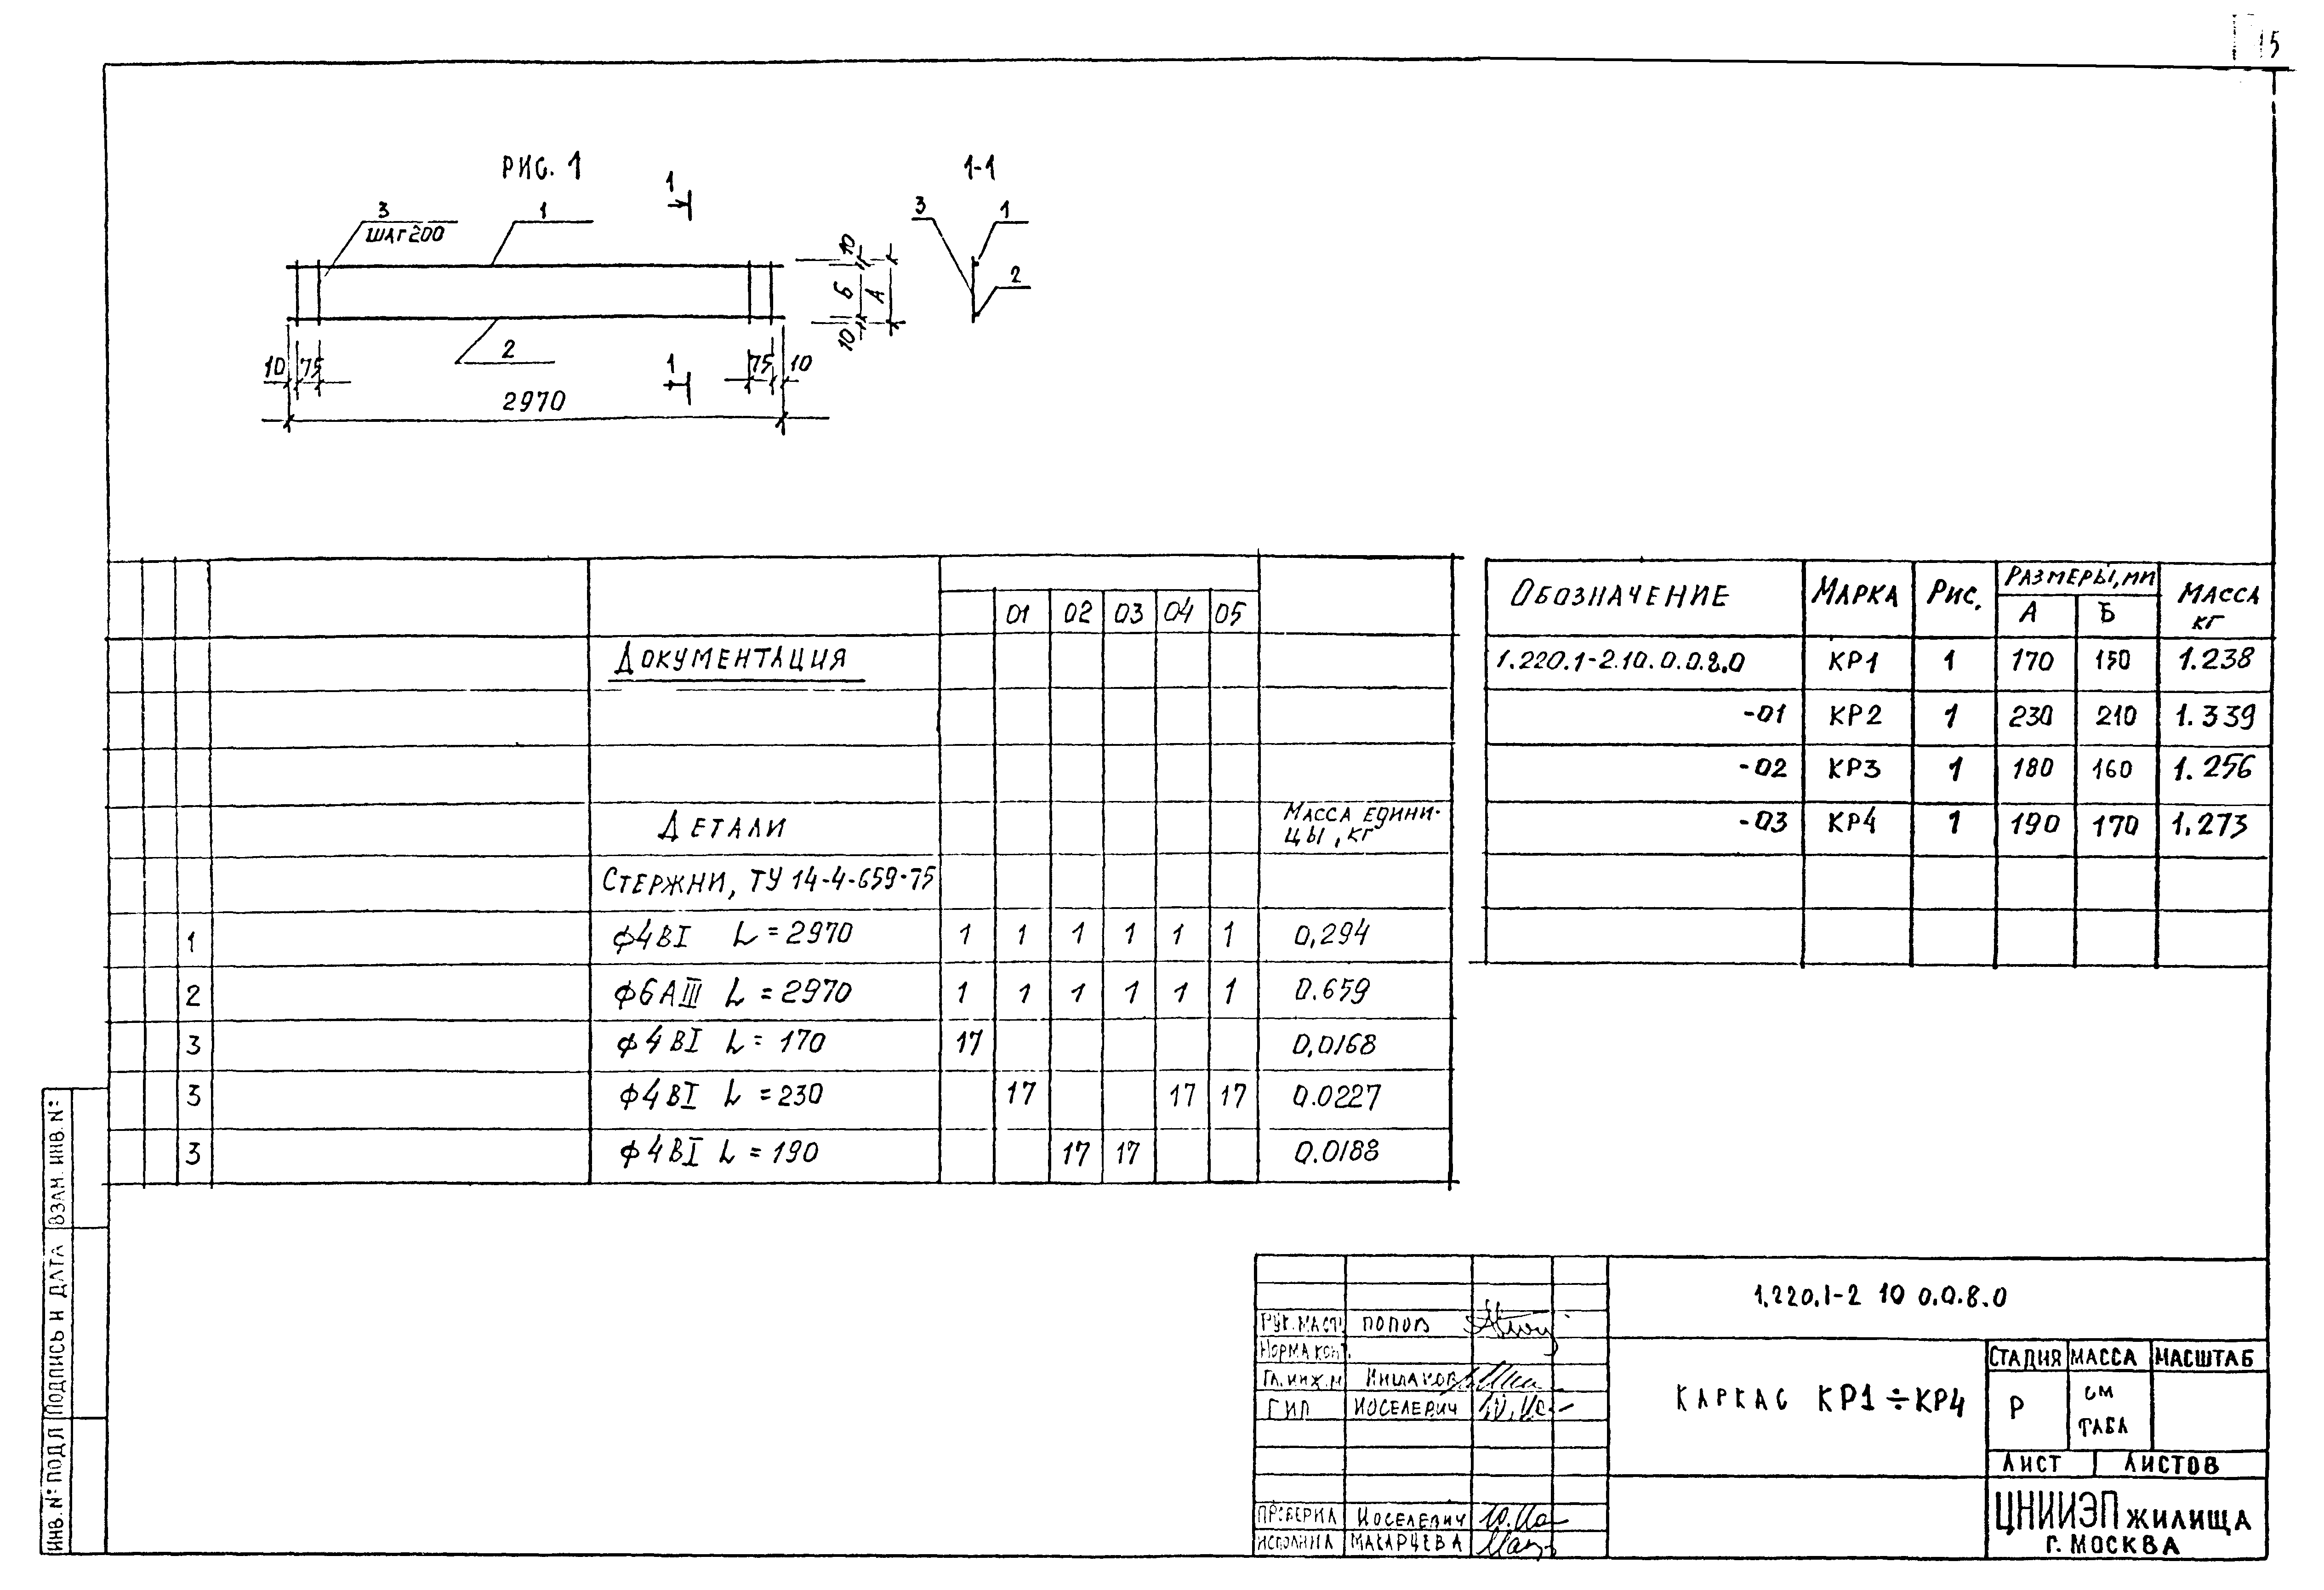 15
РИС. 1
1-1
1
3
ШАГ 200
1
2
10 75
1
75 10
2970
10
Б
А
10
3
1
2
01 02 03 04 05
ДОКУМЕНТАЦИЯ
ДЕТАЛИ
МАССА ЕДИНИ-
ЦЫ, КГ
СТЕРЖНИ, ТУ 14-4-659-75
1 ф4ВI L=2970 1 1 1 1 1 1 0,294
2 ф6АIII L=2970 1 1 1 1 1 1 0.659
3 ф4ВI L=170 17 0,0168
3 ф4ВI L=230 17 17 17 0.0227
3 ф4ВI L=190 17 17 0.0188
ОБОЗНАЧЕНИЕ МАРКА РИС. РАЗМЕРЫ, ММ МАССА
КГ
А Б
1.220.1-2.10.0.0.8.0 КР1 1 170 150 1.238
-01 КР2 1 230 210 1.339
-02 КР3 1 180 160 1.256
-03 КР4 1 190 170 1.273
ИНВ. №: ПОДЛ ПОДПИСЬ И ДАТА ВЗАМ. ИНВ. №:
1.220.1-2 10 0.0.8.0
РУК. МАСТ. ПОПОВ
НОРМАКОНТ.
ГЛ. ИНЖ. М
ГИП ИОСЕЛЕВИЧ
ПРОВЕРИЛ ИОСЕЛЕВИЧ
ИСПОЛНИЛ МАКАРЦЕВА
КАРКАС КР1÷КР4
СТАДИЯ МАССА МАСШТАБ
Р СМ
ТАБЛ
ЛИСТ ЛИСТОВ
ЦНИИЭП ЖИЛИЩА
Г. МОСКВА